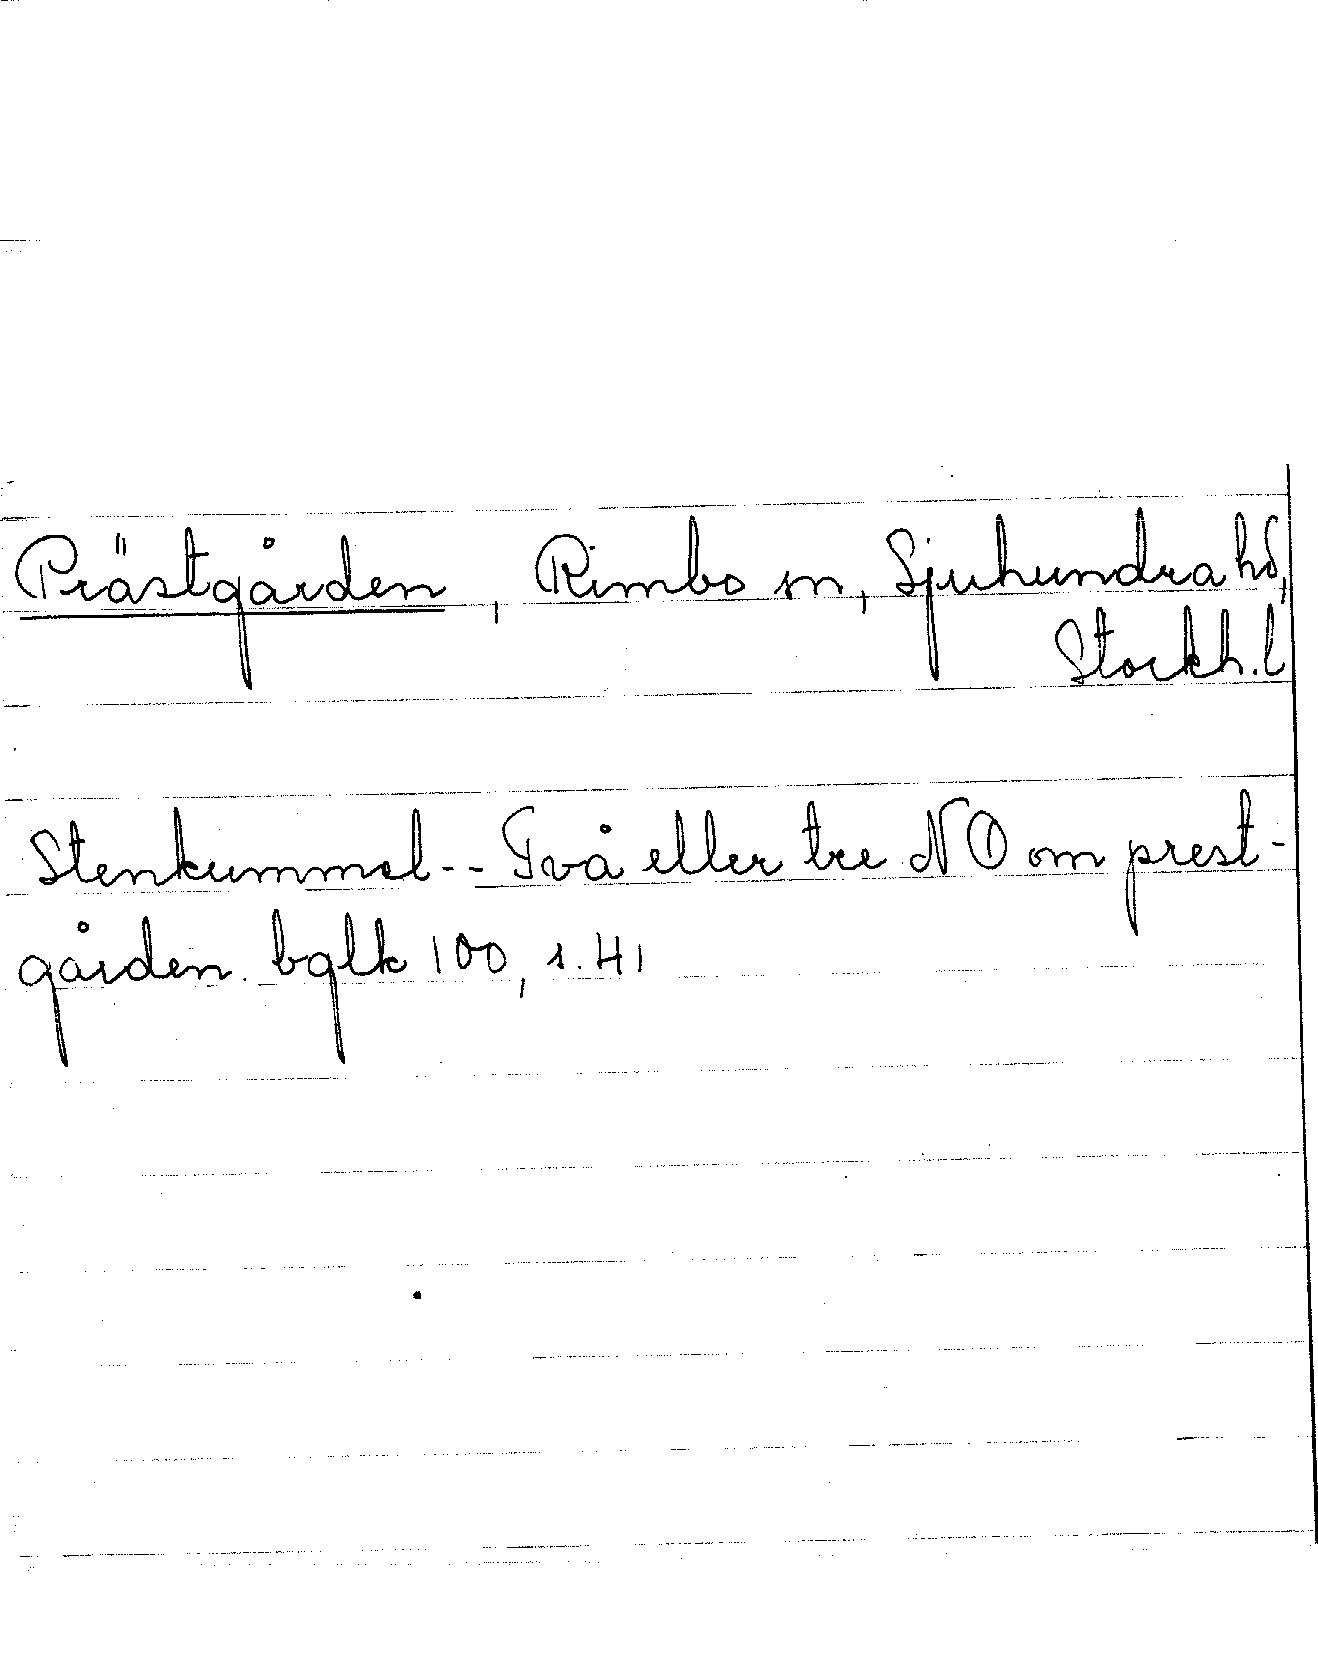 Prästgården, Rimbo sn, Sjuhundra hd,
Stockh.l
Stenkummel-- Två eller tre NO om prest-
gården. bglk 100, s. 41